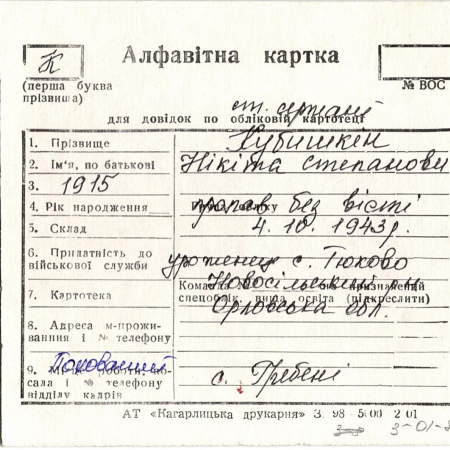 К
Алфавітна картка
(перша буква
прізвища)
№ ВОС
для довідок по обліковій картотеці
ст. сержант
1. Прізвище
Кубишкін
2. Ім'я, по батькові
Нікіта Степанови
3. 1915
4. Рік народження
пропав без вісті
5. Склад
4. 10. 1943 р.
6. Придатність до
військової служби
уроженец с. Тюково
Новосільський р-н
7. Картотека
спецоблік, вища освіта (підкреслити)
Орловська обл.
8. Адреса м-прожи-
вання і № телефону
Похований
9.
сала і № телефону
відділу кадрів
с. Гребені
АТ «Кагарлицька друкарня» З. 98 5 00 2 01
3-01-